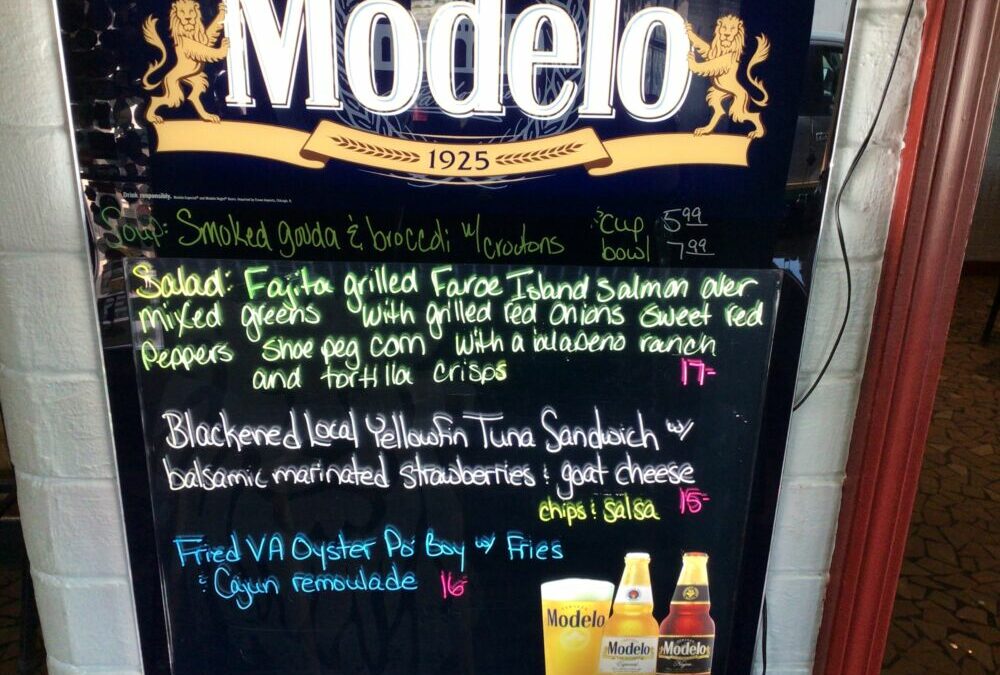 Modelo
1925
Drink responsibly.
Soup: Smoked gouda & broccoli w/ croutons
cup 5.99
bowl 7.99
Salad: Fajita grilled Faroe Island salmon over
mixed greens with grilled red onions sweet red
peppers shoe peg corn with a jalapeno ranch
and tortilla crisps 17-
Blackened Local Yellowfin Tuna Sandwich w/
balsamic marinated strawberries & goat cheese
chips & salsa 15-
Fried VA Oyster Po' Boy w/ Fries
& Cajun remoulade 16-
Modelo
Modelo
Especial
Modelo
Negra